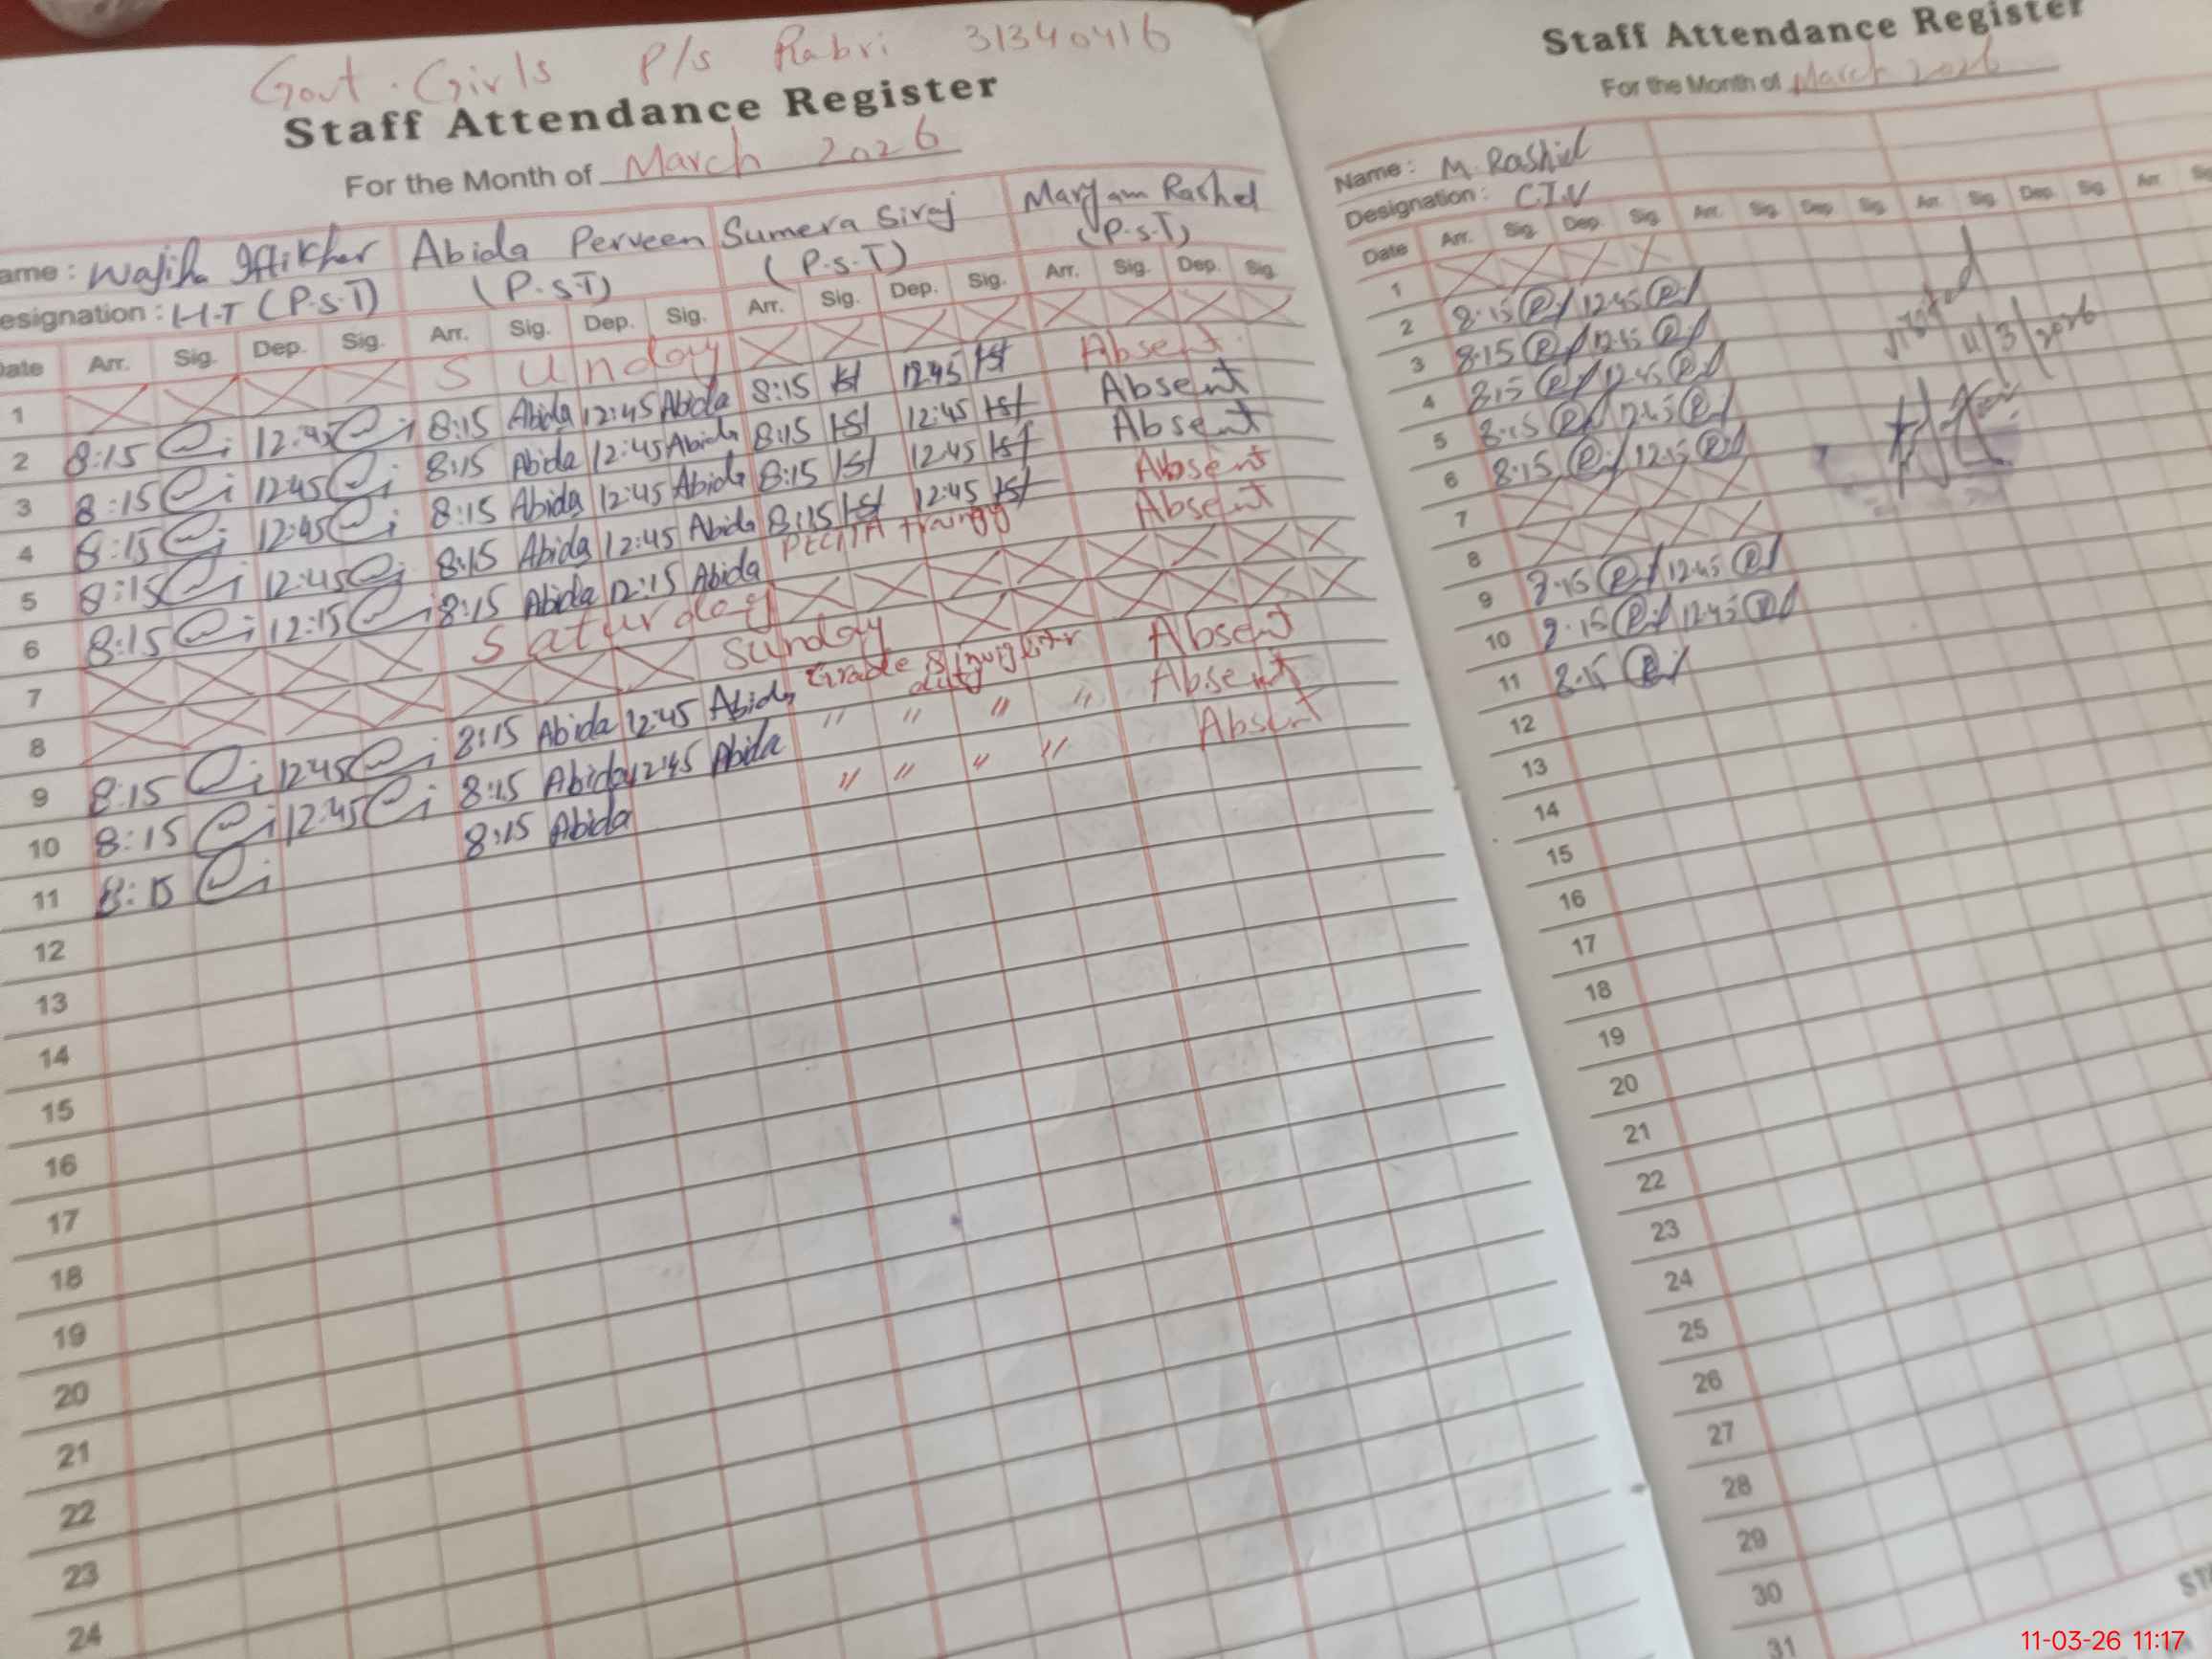 Govt. Girls P/s Rabri 31340416
Staff Attendance Register
For the Month of March 2026
ame : Wajiha Iftikhar Abida Perveen Sumera Siraj Maryam Rashed
esignation : H-T (P.S.T) (P.S.T) (P.S.T) (P.S.T)
Date Arr. Sig. Dep. Sig. Arr. Sig. Dep. Sig. Arr. Sig. Dep. Sig. Arr. Sig. Dep. Sig.
1 Sunday
2 8:15 12:45 8:15 Abida 12:45 Abida 8:15 12:45 Absent
3 8:15 12:45 8:15 Abida 12:45 Abida 8:15 12:45 Absent
4 8:15 12:45 8:15 Abida 12:45 Abida 8:15 12:45 Absent
5 8:15 12:45 8:15 Abida 12:45 Abida 8:15 12:45 Absent
6 8:15 12:15 8:15 Abida 12:15 Abida Absent
7 Saturday
8 Sunday
9 8:15 12:45 8:15 Abida 12:45 Abida Grade 8 duty Absent
10 8:15 12:45 8:15 Abida 12:45 Abida " " " " Absent
11 8:15 8:15 Abida " " " " Absent
12
13
14
15
16
17
18
19
20
21
22
23
24
Staff Attendance Register
For the Month of March 2026
Name : M. Rashid
Designation : C.I.V
Date Arr. Sig. Dep. Sig. Arr. Sig. Dep. Sig. Arr. Sig. Dep. Sig. Arr.
1
2 8:15 12:45
3 8:15 12:45
4 8:15 12:45
5 8:15 12:45
6 8:15 12:15
7
8
9 8:15 12:45
10 8:15 12:45
11 8:15
12
13
14
15
16
17
18
19
20
21
22
23
24
25
26
27
28
29
30
31
visited
11/3/2026
11-03-26 11:17